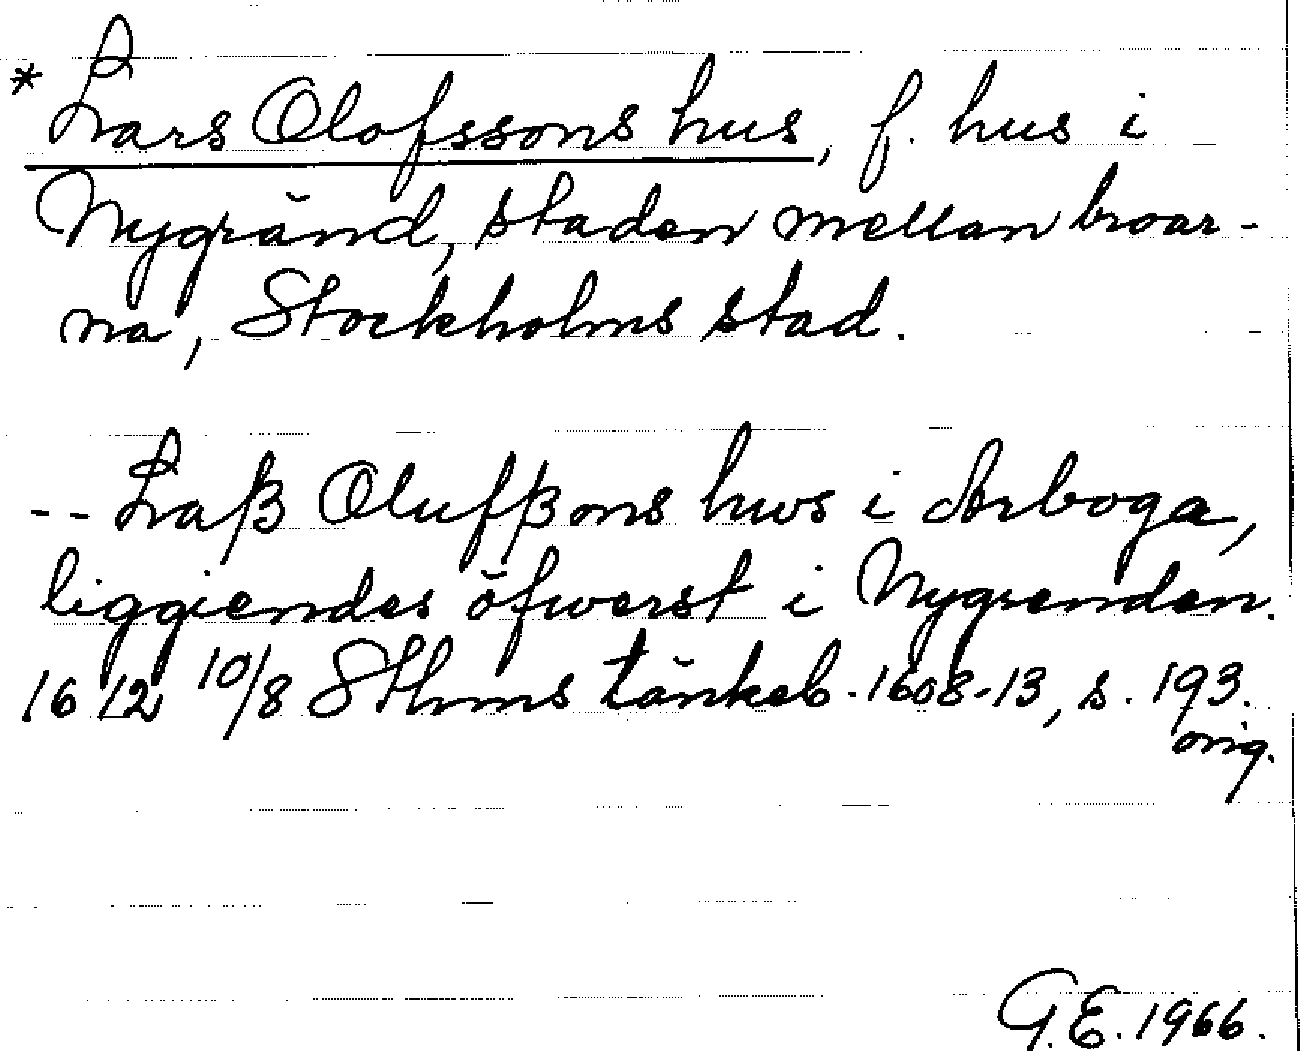 * Lars Olofssons hus, f. hus i
Nygränd, staden mellan broar-
na, Stockholms stad.
-- Laß Olufßons hws i Arboga,
liggiendes öfwerst i Nygrenden.
1612 10/8 Sthms tänkeb. 1608-13, s. 193.
orig.
G.E. 1966.